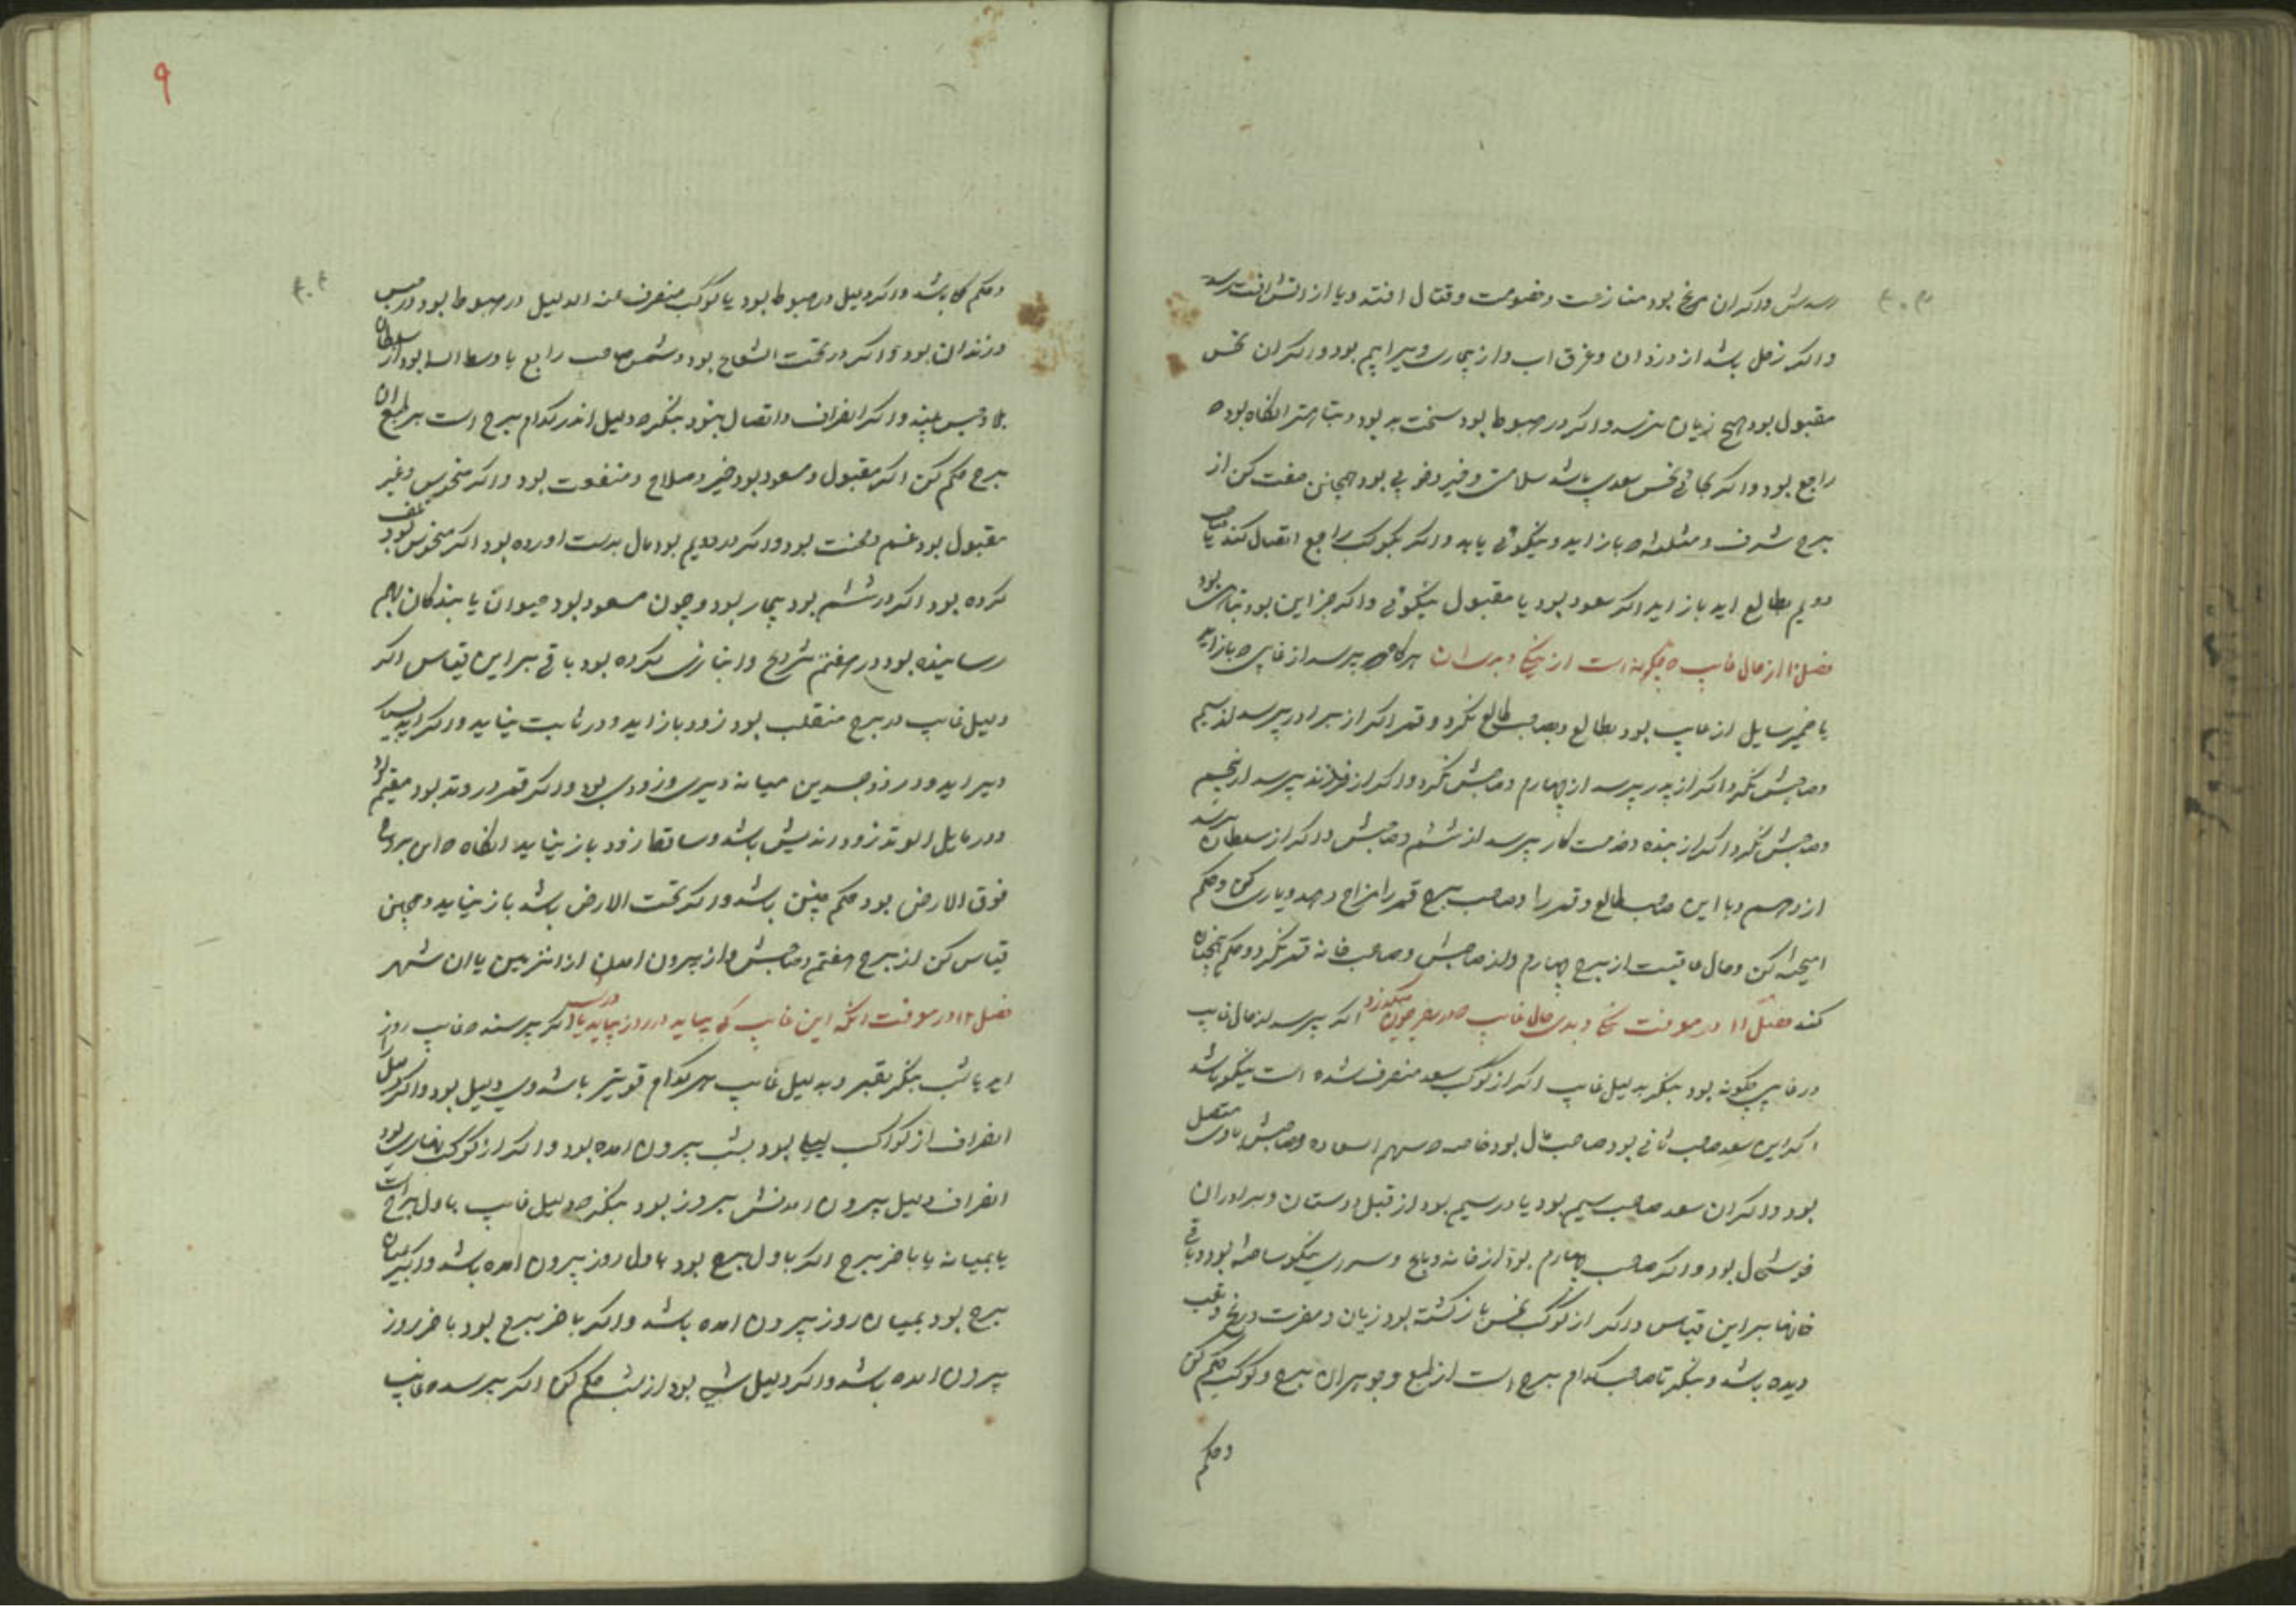 رسدش واکر ان مریخ بود منازعت وخصومت وقتال افتد ویا از اتش افت رسد
واکر زحل باشد از دزدان وغرق اب واز بیماری وبیراهیم بود واکر ان نحس
مقبول بود هیچ زیان نرسد واکر در هبوط بود سخت بد بود وتباهتر انکاه بود که
راجع بود واکر بجای نحس سعدی باشد سلامت وخیر وخوبی بود همچنین صفت کن از
برج شرف ومثلثه که باز اید ونیکوئی یابد واکر بکوکب راجع اتصال کند یا صاحب
دویم بطالع اید باز اید اکر سعود بود یا مقبول نیکوئی واکر جز این بود تباهی بود
فصل ۱۰ از حال غایب که چکونه است از نیکی وبدی ان هرکاه که بپرسد از غایبی که باز اید
یا ضمیر سایل از غایب بود بطالع وبصاحب طالع نکرد وقمر اکر از برادر پرسد از سیم
وصاحبش نکرد اکر از پدر پرسد از چهارم وصاحبش نکرد واکر از فرزند پرسد از پنجم
وصاحبش نکرد اکر از بنده وخدمت کار پرسد از ششم وصاحبش واکر از سلطان پرسد
از دهم وبا این صاحب طالع وقمر را وصاحب برج قمر را مزاج دهد ویاری کن وحکم
امیخته کن وحال عاقبت از برج چهارم واز صاحبش وصاحب خانه قمر نکرد وحکم همچنان
کند فصل ۱۱ در معرفت نیکی وبدی حال غایب که در سفر چون میکذرد اکر پرسد از حال غایب
در غایبی چکونه بود بنکر بدلیل غایب اکر از کوکب سعد منصرف شده است نیکو باشد
اکر این سعد صاحب ثانی بود صاحب مال بود خاصه که سهم السعاده وصاحبش باوی متصل
بود واکر ان سعد صاحب سیم بود یا در سیم بود از قبل دوستان وبرادران
خوشحال بود واکر صاحب چهارم بود از خانه وباغ وسرای نیکو ساخته بود وباقی
خانها براین قیاس واکر از کوکب نحس بازکشته بود زیان ومضرت ورنج وتعب
دیده باشد وبنکر تا صاحب کدام برج است از طبع وجوهر ان برج وکوکب حکم کن
وحکم
۹
وحکم باشد واکر دلیل در هبوط بود یا کوکب منصرف عنه الدلیل در هبوط بود در حبس
وزندان بود واکر در تحت الشعاع بود وشمس صاحب رابع یا وسط السما بود از سلطان
بلا وحبس بیند واکر انصراف واتصال نبود بنکر که دلیل اندر کدام برج است بر طبع ان
برج حکم کن اکر مقبول ومسعود بود خیر وصلاح ومنفعت بود واکر منحوس وغیر
مقبول بود غم ومحنت بود واکر در دویم بود مال بدست اورده بود اکر منحوس بود تلف
کرده بود اکر در ششم بود بیمار بود وچون مسعود بود حیوان یا بندکان بهم
رسانیده بود در هفتم تزویج وانبازی کرده بود باقی براین قیاس اکر
دلیل غایب در برج منقلب بود زود باز اید ودر ثابت نیاید واکر اید بسیار
دیر اید ودر ذوجسدین میانه دیری وزودی بود واکر قمر در وتد بود مقیم بود
ودر مایل الوتد زود اندیش باشد وساقط زود باز نیاید انکاه که این هر دو
فوق الارض بود حکم چنین باشد واکر تحت الارض باشد باز نیاید وهمچنین
قیاس کن از برج هفتم وصاحبش واز بیرون امدن از انزمین یا ان شهر
فصل ۱۲ در معرفت انکه این غایب کی بیاید در روز بیاید یا در شب اکر پرسند که غایب روز
اید یا شب بنکر بقمر وبدلیل غایب هر کدام قویتر باشد وی دلیل بود واکر دلیل را
انصراف از کواکب لیلی بود بشب بیرون امده بود واکر از کوکب نهاری بود
انصراف دلیل بیرون امدنش بروز بود بنکر که دلیل غایب باول برج است
یا بمیانه یا باخر برج اکر باول برج بود باول روز بیرون امده باشد واکر بمیان
برج بود بمیان روز بیرون امده باشد واکر باخر برج بود باخر روز
بیرون امده باشد واکر دلیل شبی بود از شب حکم کن اکر پرسد که غایب